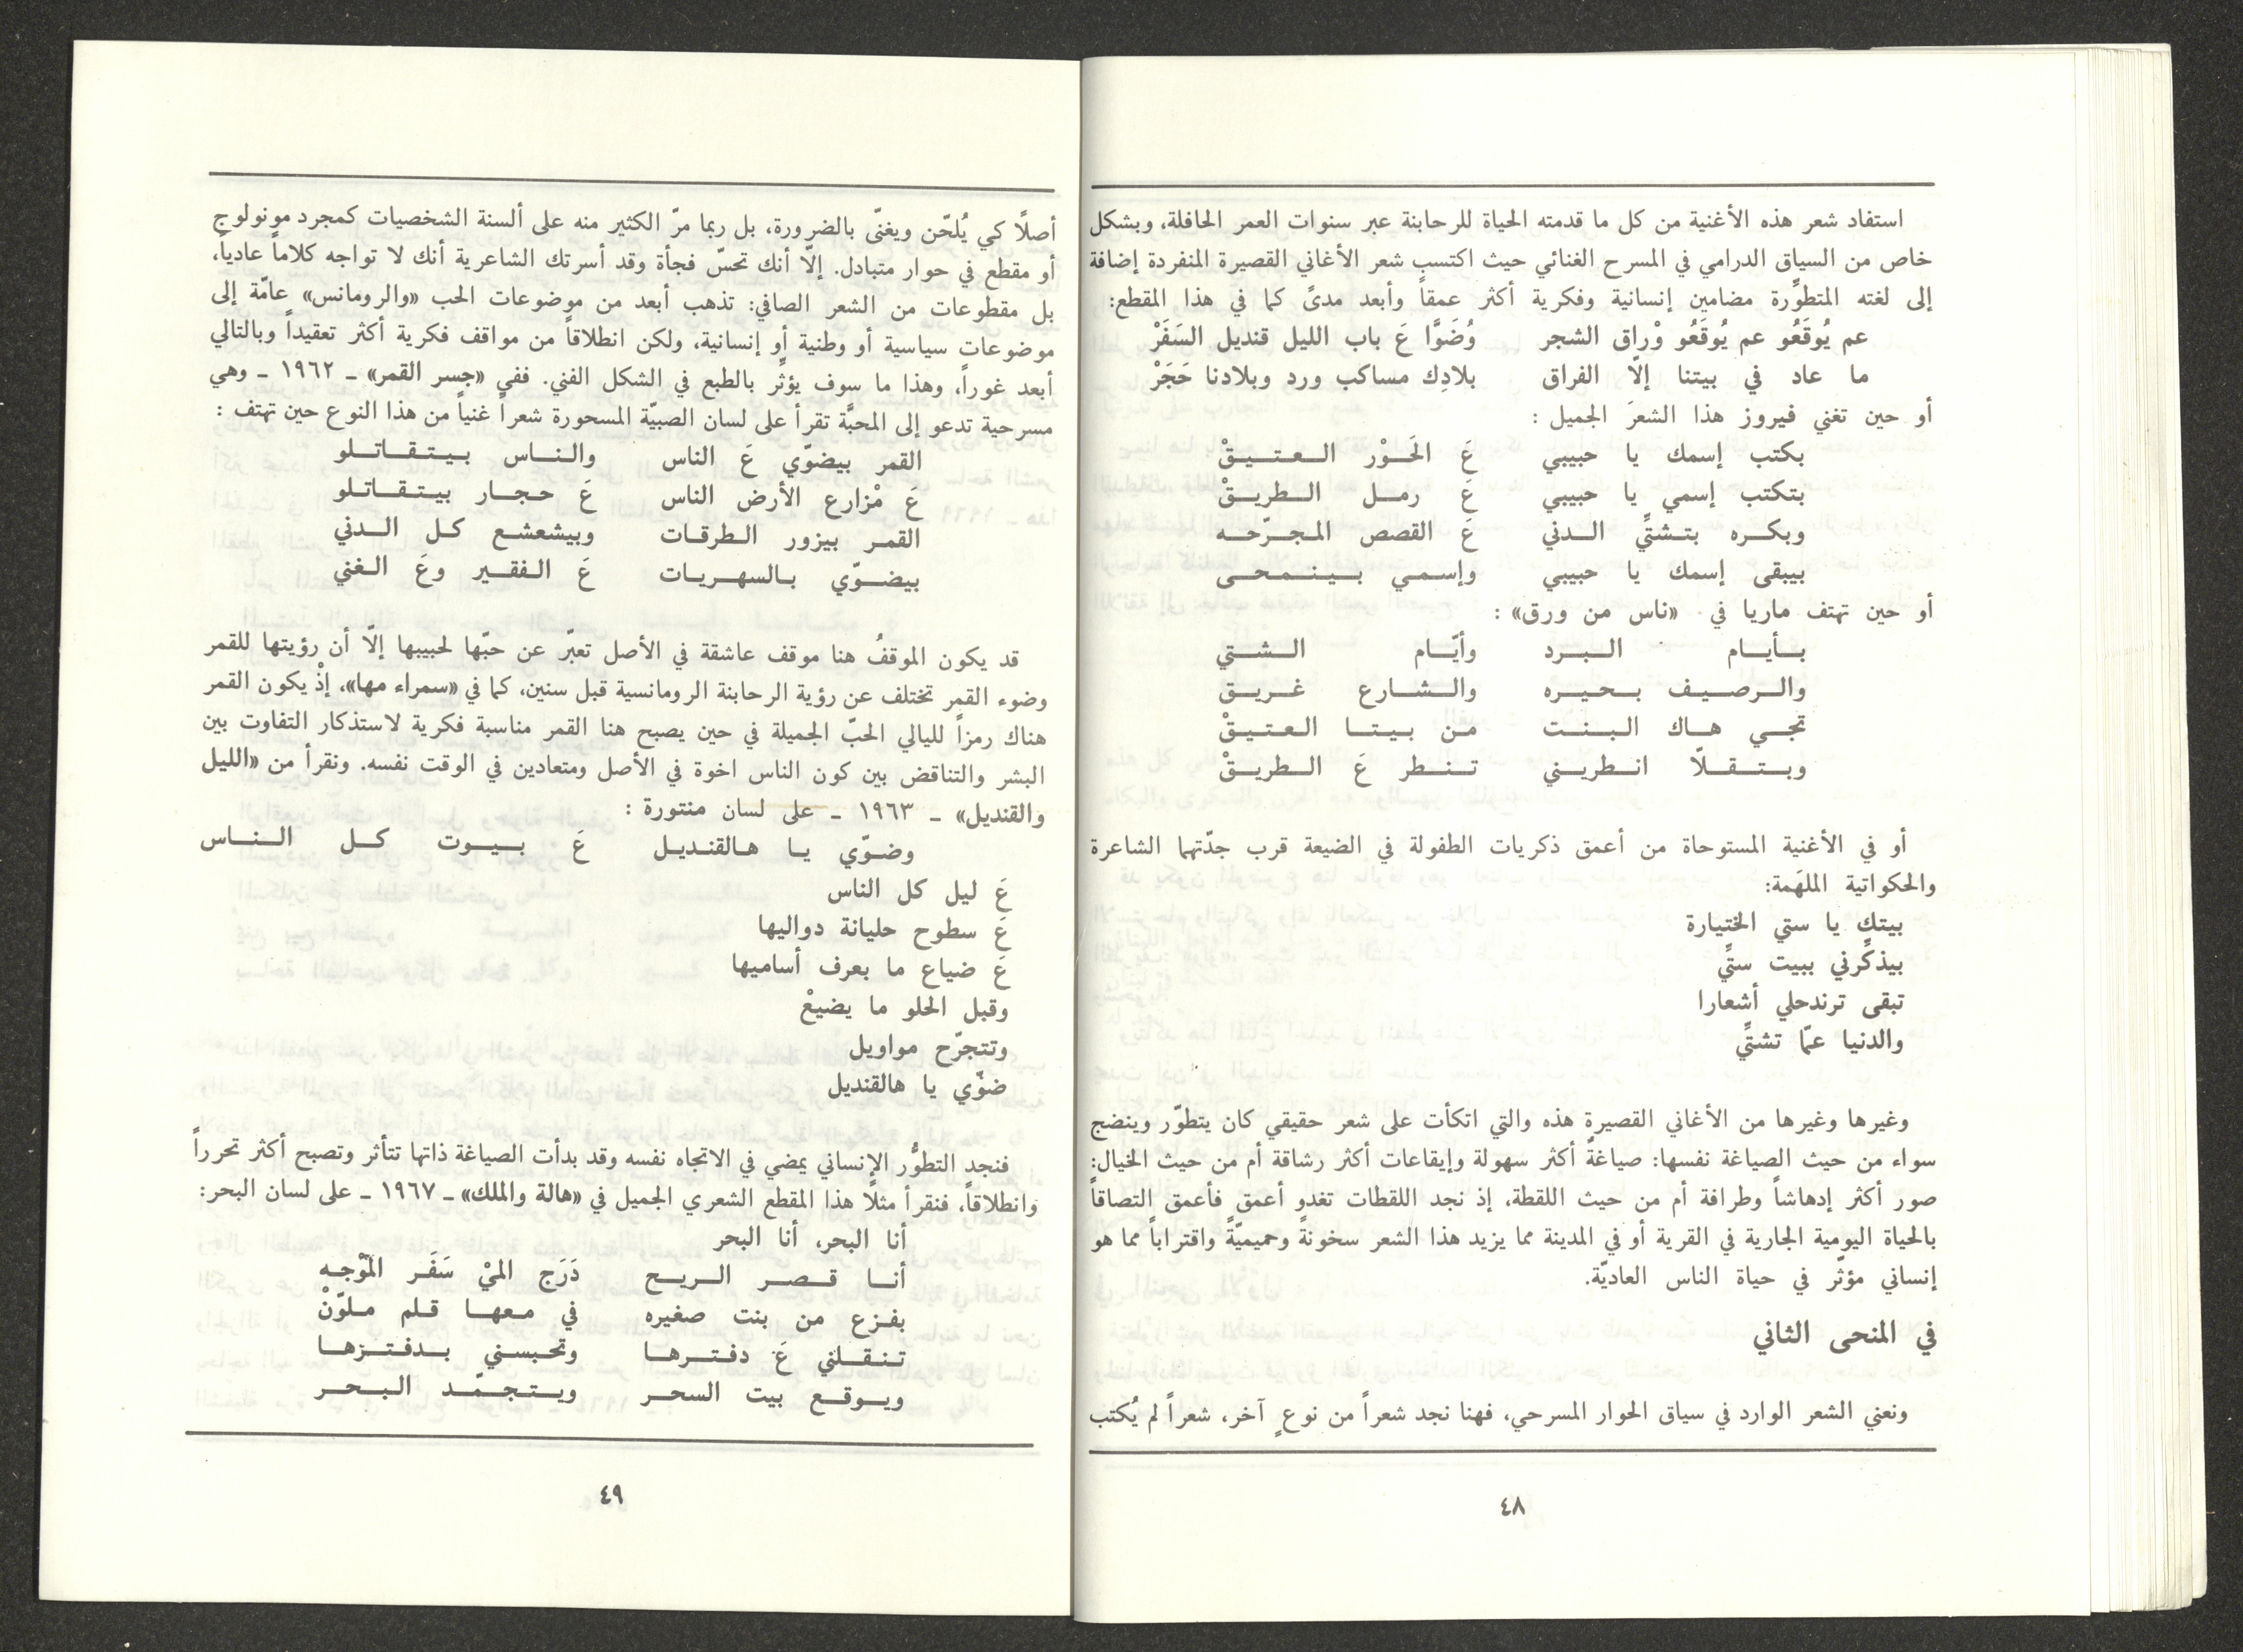 استفاد شعر هذه الأغنية من كل ما قدمته الحياة للرحابنة عبر سنوات العمر الحافلة، وبشكل
خاص من السياق الدرامي في المسرح الغنائي حيث اكتسب شعر الأغاني القصيرة المنفردة إضافة
إلى لغته المتطوِّرة مضامين إنسانية وفكرية أكثر عمقاً وأبعد مدىً كما في هذا المقطع:
عم يُوقَعُو عم يُوقَعُو وْراق الشجر وُضَوَّا عَ باب الليل قنديل السَفَرْ
ما عاد في بيتنا إلاّ الفراق بلادِك مساكب ورد وبلادنا حَجَرْ
أو حين تغني فيروز هذا الشعرَ الجميل :
بكتب إسمك يا حبيبي عَ الحَوْر العتيقْ
بتكتب إسمي يا حبيبي عَ رمل الطريقْ
وبكره بتشتِّي الدني عَ القصص المجرّحه
بيبقى إسمك يا حبيبي وإسمي بينمحى
أو حين تهتف ماريا في «ناس من ورق» :
بأيام البرد وأيّام الشتي
والرصيف بحيره والشارع غريق
تجي هاك البنت من بيتا العتيقْ
وبتقلّا انطريني تنطر عَ الطريقْ
أو في الأغنية المستوحاة من أعمق ذكريات الطفولة في الضيعة قرب جدّتهما الشاعرة
والحكواتية الملهَمة:
بيتك يا ستي الختيارة
بيذكِّرني ببيت ستِّي
تبقى ترندحلي أشعارا
والدنيا عمّا تشتِّي
وغيرها وغيرها من الأغاني القصيرة هذه والتي اتكأت على شعر حقيقي كان يتطوّر وينضج
سواء من حيث الصياغة نفسها: صياغةً أكثر سهولة وإيقاعات أكثر رشاقة أم من حيث الخيال:
صور أكثر إدهاشاً وطرافة أم من حيث اللقطة، إذ نجد اللقطات تغدو أعمق فأعمق التصاقاً
بالحياة اليومية الجارية في القرية أو في المدينة مما يزيد هذا الشعر سخونةً وحميميّةً واقتراباً مما هو
إنساني مؤثّر في حياة الناس العاديّة.
في المنحى الثاني
ونعني الشعر الوارد في سياق الحوار المسرحي، فهنا نجد شعراً من نوعٍ آخر، شعراً لم يُكتب
٤٨
أصلًا كي يُلحّن ويغنّى بالضرورة، بل ربما مرّ الكثير منه على ألسنة الشخصيات كمجرد مونولوج
أو مقطع في حوار متبادل. إلّا أنك تحسّ فجأة وقد أسرتك الشاعرية أنك لا تواجه كلاماً عادياً،
بل مقطوعات من الشعر الصافي: تذهب أبعد من موضوعات الحب «والرومانس» عامّة إلى
موضوعات سياسية أو وطنية أو إنسانية، ولكن انطلاقاً من مواقف فكرية أكثر تعقيداً وبالتالي
أبعد غوراً، وهذا ما سوف يؤثِّر بالطبع في الشكل الفني. ففي «جسر القمر» ـ ١٩٦٢ ـ وهي
مسرحية تدعو إلى المحبَّة تقرأ على لسان الصبيّة المسحورة شعراً غنياً من هذا النوع حين تهتف :
القمر بيضوّي عَ الناس والناس بيتقاتلو
عَ مْزارع الأرض الناس عَ حجار بيتقاتلو
القمر بيزور الطرقات وبيشعشع كل الدني
بيضوّي بالسهريات عَ الفقير وعَ الغني
قد يكون الموقفُ هنا موقف عاشقة في الأصل تعبّر عن حبّها لحبيبها إلّا أن رؤيتها للقمر
وضوء القمر تختلف عن رؤية الرحابنة الرومانسية قبل سنين، كما في «سمراء مها»، إذْ يكون القمر
هناك رمزاً لليالي الحبّ الجميلة في حين يصبح هنا القمر مناسبة فكرية لاستذكار التفاوت بين
البشر والتناقض بين كون الناس اخوة في الأصل ومتعادين في الوقت نفسه. ونقرأ من «الليل
والقنديل» ـ ١٩٦٣ ـ على لسان منتورة :
وضوّي يا هالقنديل عَ بيوت كل الناس
عَ ليل كل الناس
عَ سطوح حليانة دواليها
عَ ضياع ما بعرف أساميها
وقبل الحلو ما يضيعْ
وتتجرّح مواويل
ضوّي يا هالقنديل
فنجد التطوُّر الإنساني يمضي في الاتجاه نفسه وقد بدأت الصياغة ذاتها تتأثر وتصبح أكثر تحرراً
وانطلاقاً، فنقرأ مثلًا هذا المقطع الشعري الجميل في «هالة والملك» ـ ١٩٦٧ ـ على لسان البحر:
أنا البحر، أنا البحر
أنا قصر الريح دَرَج الميْ سَفَر المَوْجه
بفزع من بنت صغيره في معها قلم ملوّنْ
تنقلني عَ دفترها وتحبسني بدفتزها
ويوقع بيت السحر ويتجمّد البحر
٤٩